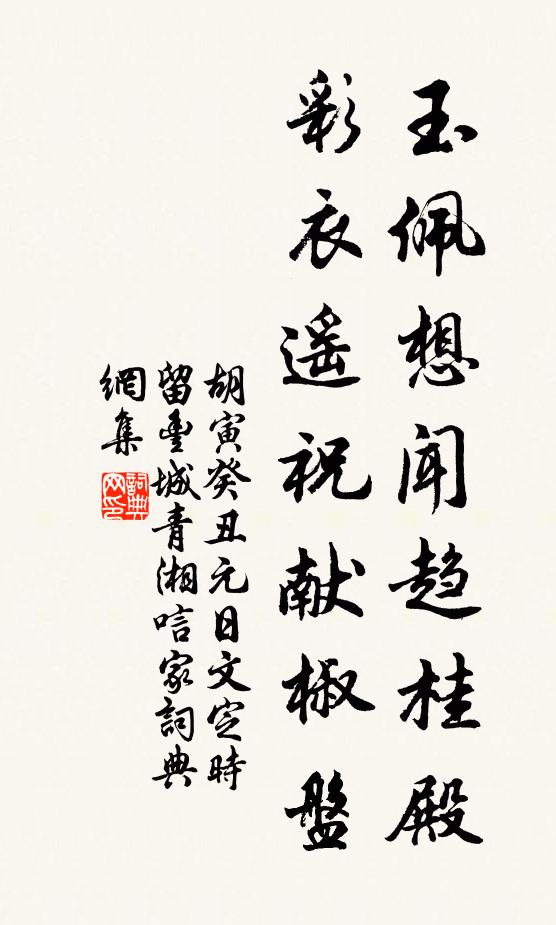 玉佩想闻趋桂殿
彩衣遥祝献椒盤
胡寅癸丑元日文定時
留豊城青湘唁家詞典
網集
詞典网印